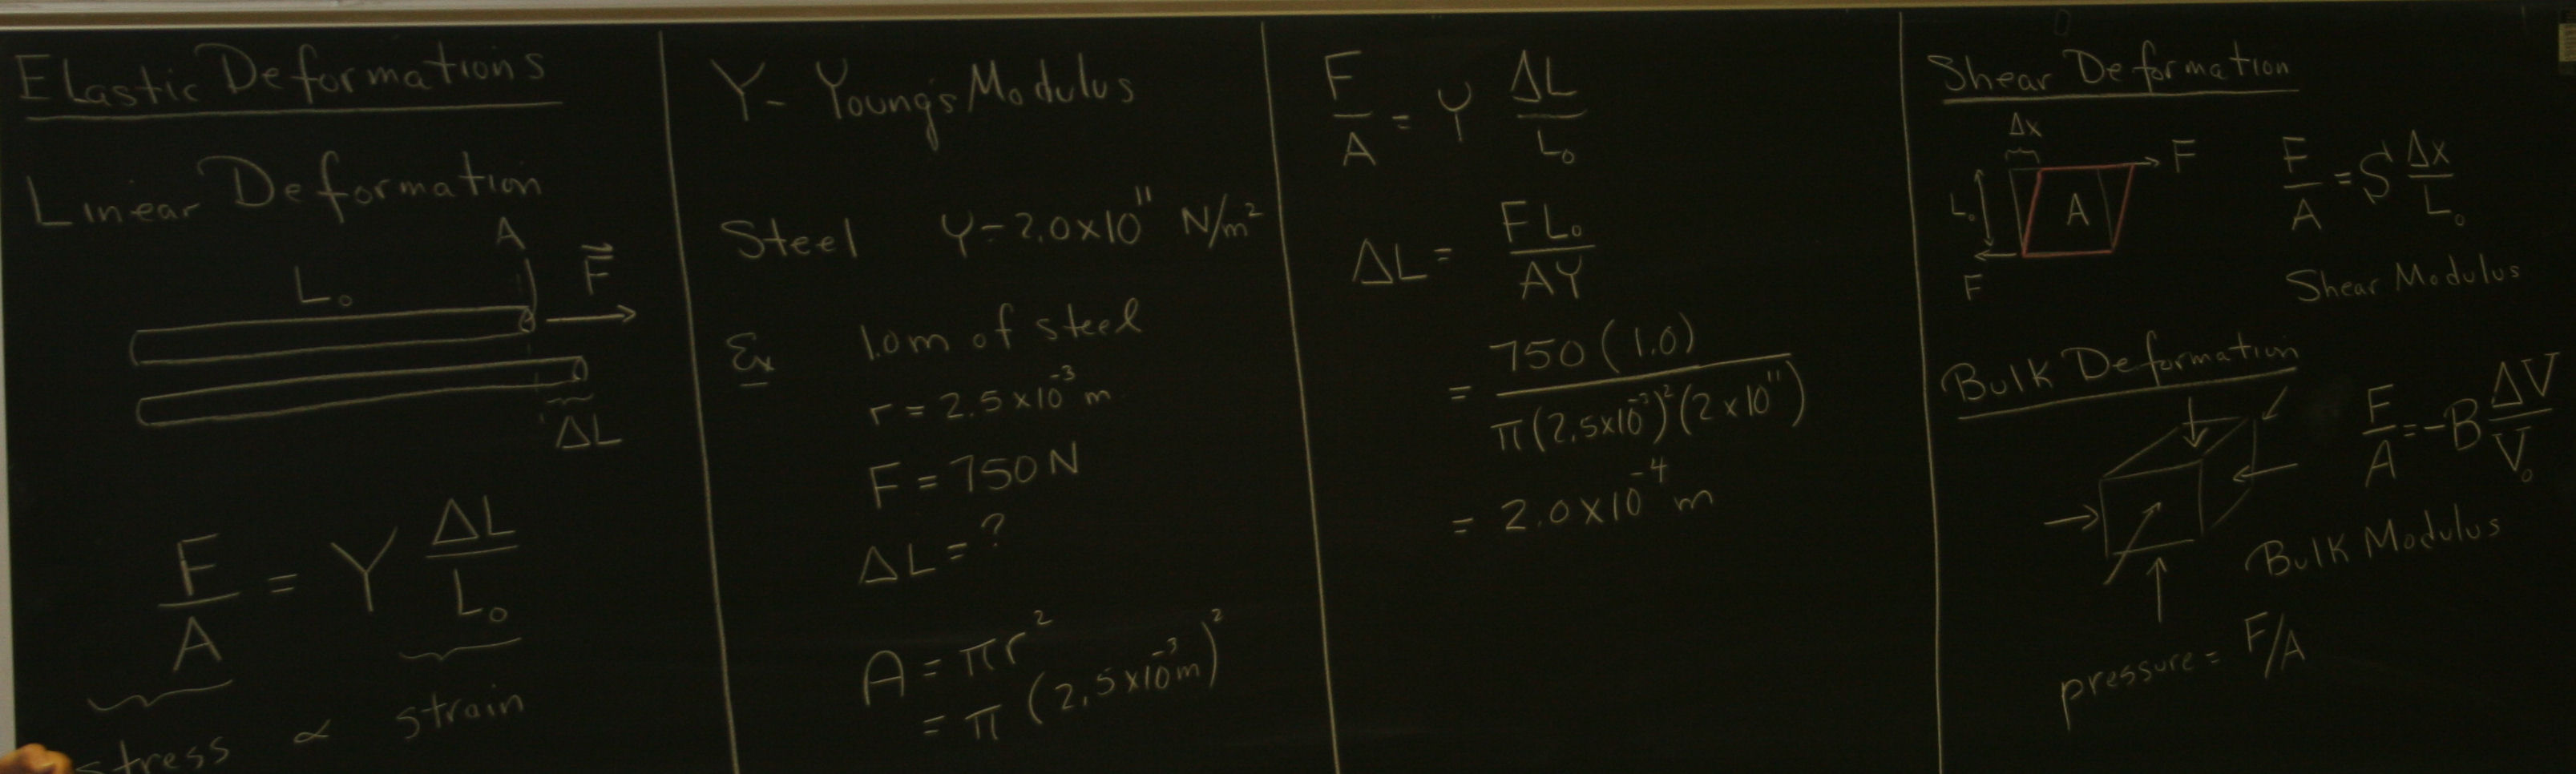 Elastic Deformations
Linear Deformation
A
L₀
F⃗
ΔL
F/A = Y ΔL/L₀
stress ∝ strain
Y - Young's Modulus
Steel Y = 2.0×10¹¹ N/m²
Ex 1.0m of steel
r = 2.5×10⁻³ m
F = 750 N
ΔL = ?
A = πr²
= π (2.5×10⁻³m)²
F/A = Y ΔL/L₀
ΔL = FL₀/AY
= 750(1.0)/π(2.5×10⁻³)²(2×10¹¹)
= 2.0×10⁻⁴ m
Shear Deformation
Δx
F
L₀
A
F
F/A = S Δx/L₀
Shear Modulus
Bulk Deformation
F/A = -B ΔV/V₀
Bulk Modulus
pressure = F/A